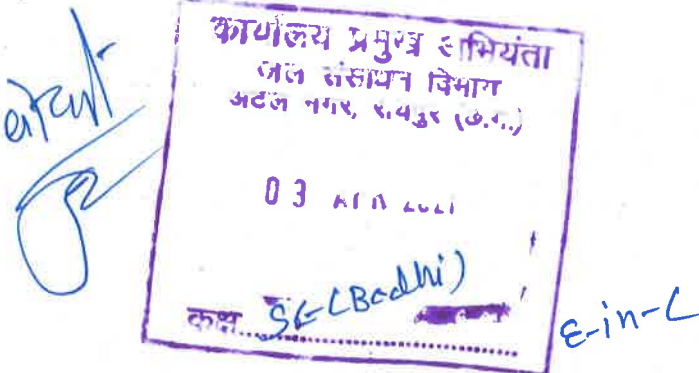 कार्यालय प्रमुख अभियंता
जल संसाधन विभाग
अटल नगर, रायपुर (छ.ग.)
03
कक्ष SE (Bodhi)
E-in-C